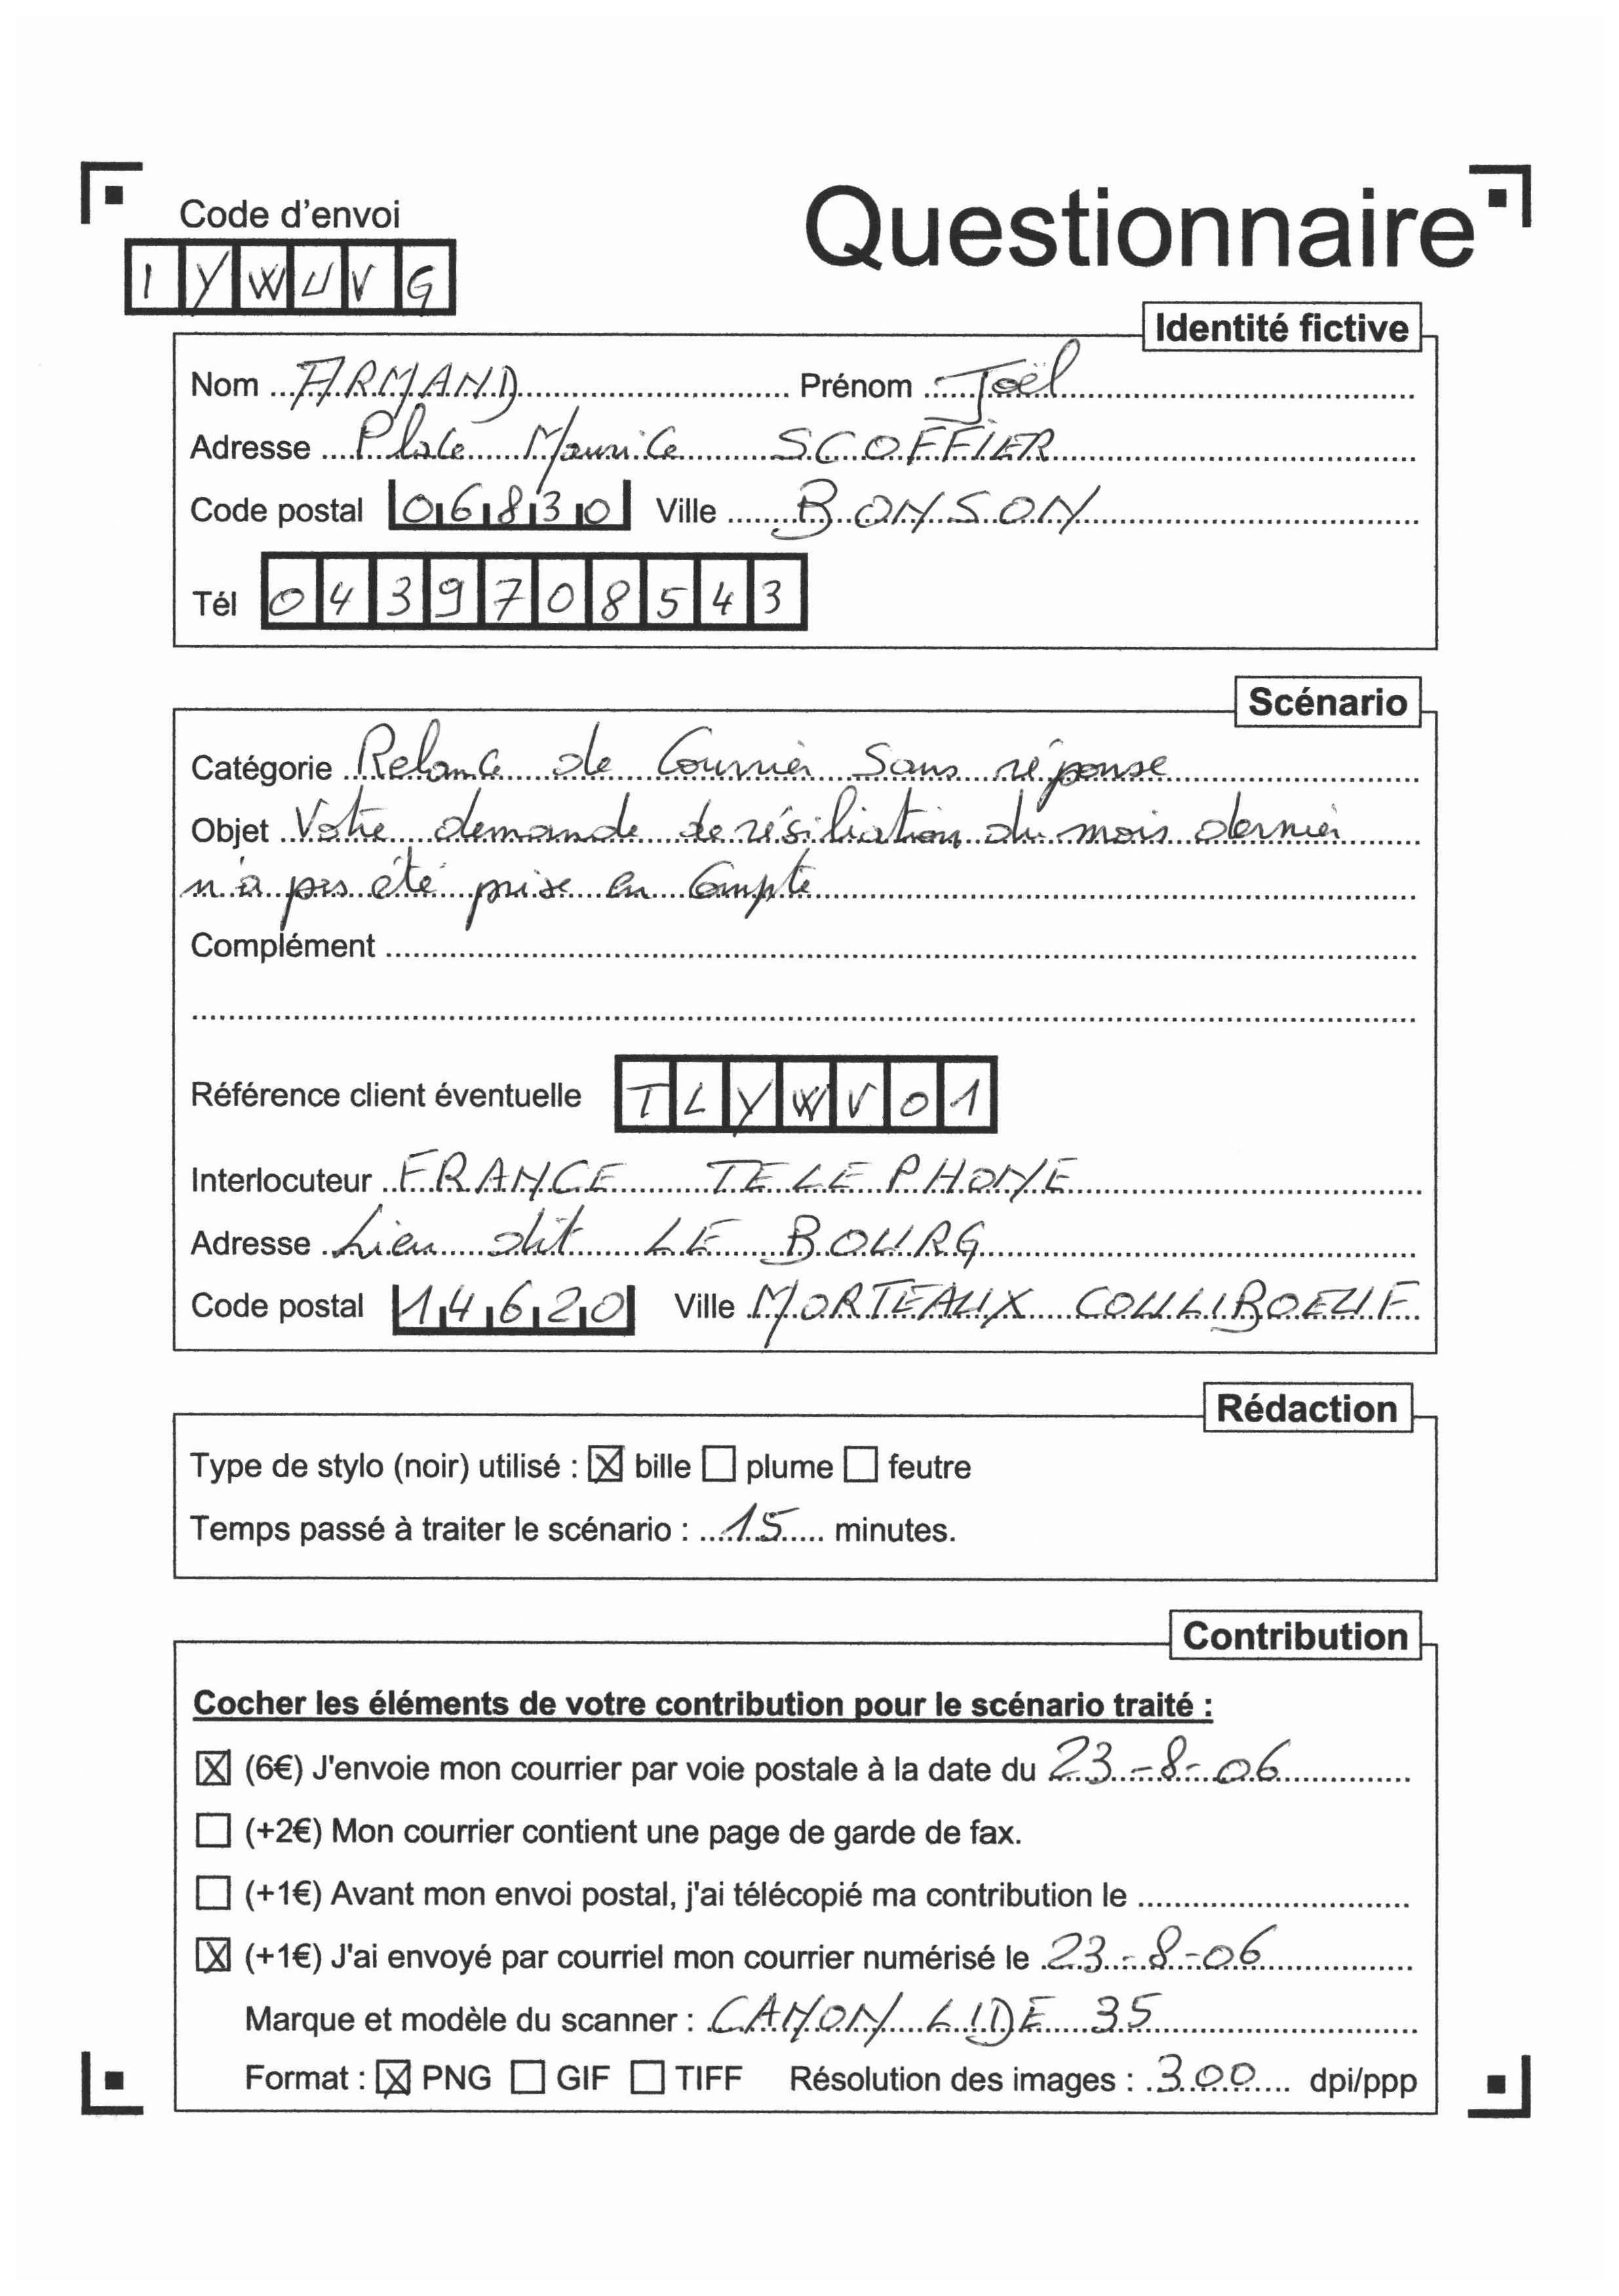 Questionnaire
Code d'envoi
IYWUVG
Identité fictive
Nom ARMAND Prénom Joël
Adresse Place Maurice SCOFFIER
Code postal 06830 Ville BONSON
Tél 0439708543
Scénario
Catégorie Relance de Courrier Sans réponse
Objet Votre demande de résiliation du mois dernier
n'a pas été prise en Compte
Complément
Référence client éventuelle TLYWV01
Interlocuteur FRANCE TELEPHONE
Adresse Lieu dit LE BOURG
Code postal 14620 Ville MORTEAUX COULLIBOEUF
Rédaction
Type de stylo (noir) utilisé : ☒ bille ☐ plume ☐ feutre
Temps passé à traiter le scénario : 15 minutes.
Contribution
Cocher les éléments de votre contribution pour le scénario traité :
☒ (6€) J'envoie mon courrier par voie postale à la date du 23-8-06
☐ (+2€) Mon courrier contient une page de garde de fax.
☐ (+1€) Avant mon envoi postal, j'ai télécopié ma contribution le
☒ (+1€) J'ai envoyé par courriel mon courrier numérisé le 23-8-06
Marque et modèle du scanner : CANON LIDE 35
Format : ☒ PNG ☐ GIF ☐ TIFF Résolution des images : 300 dpi/ppp